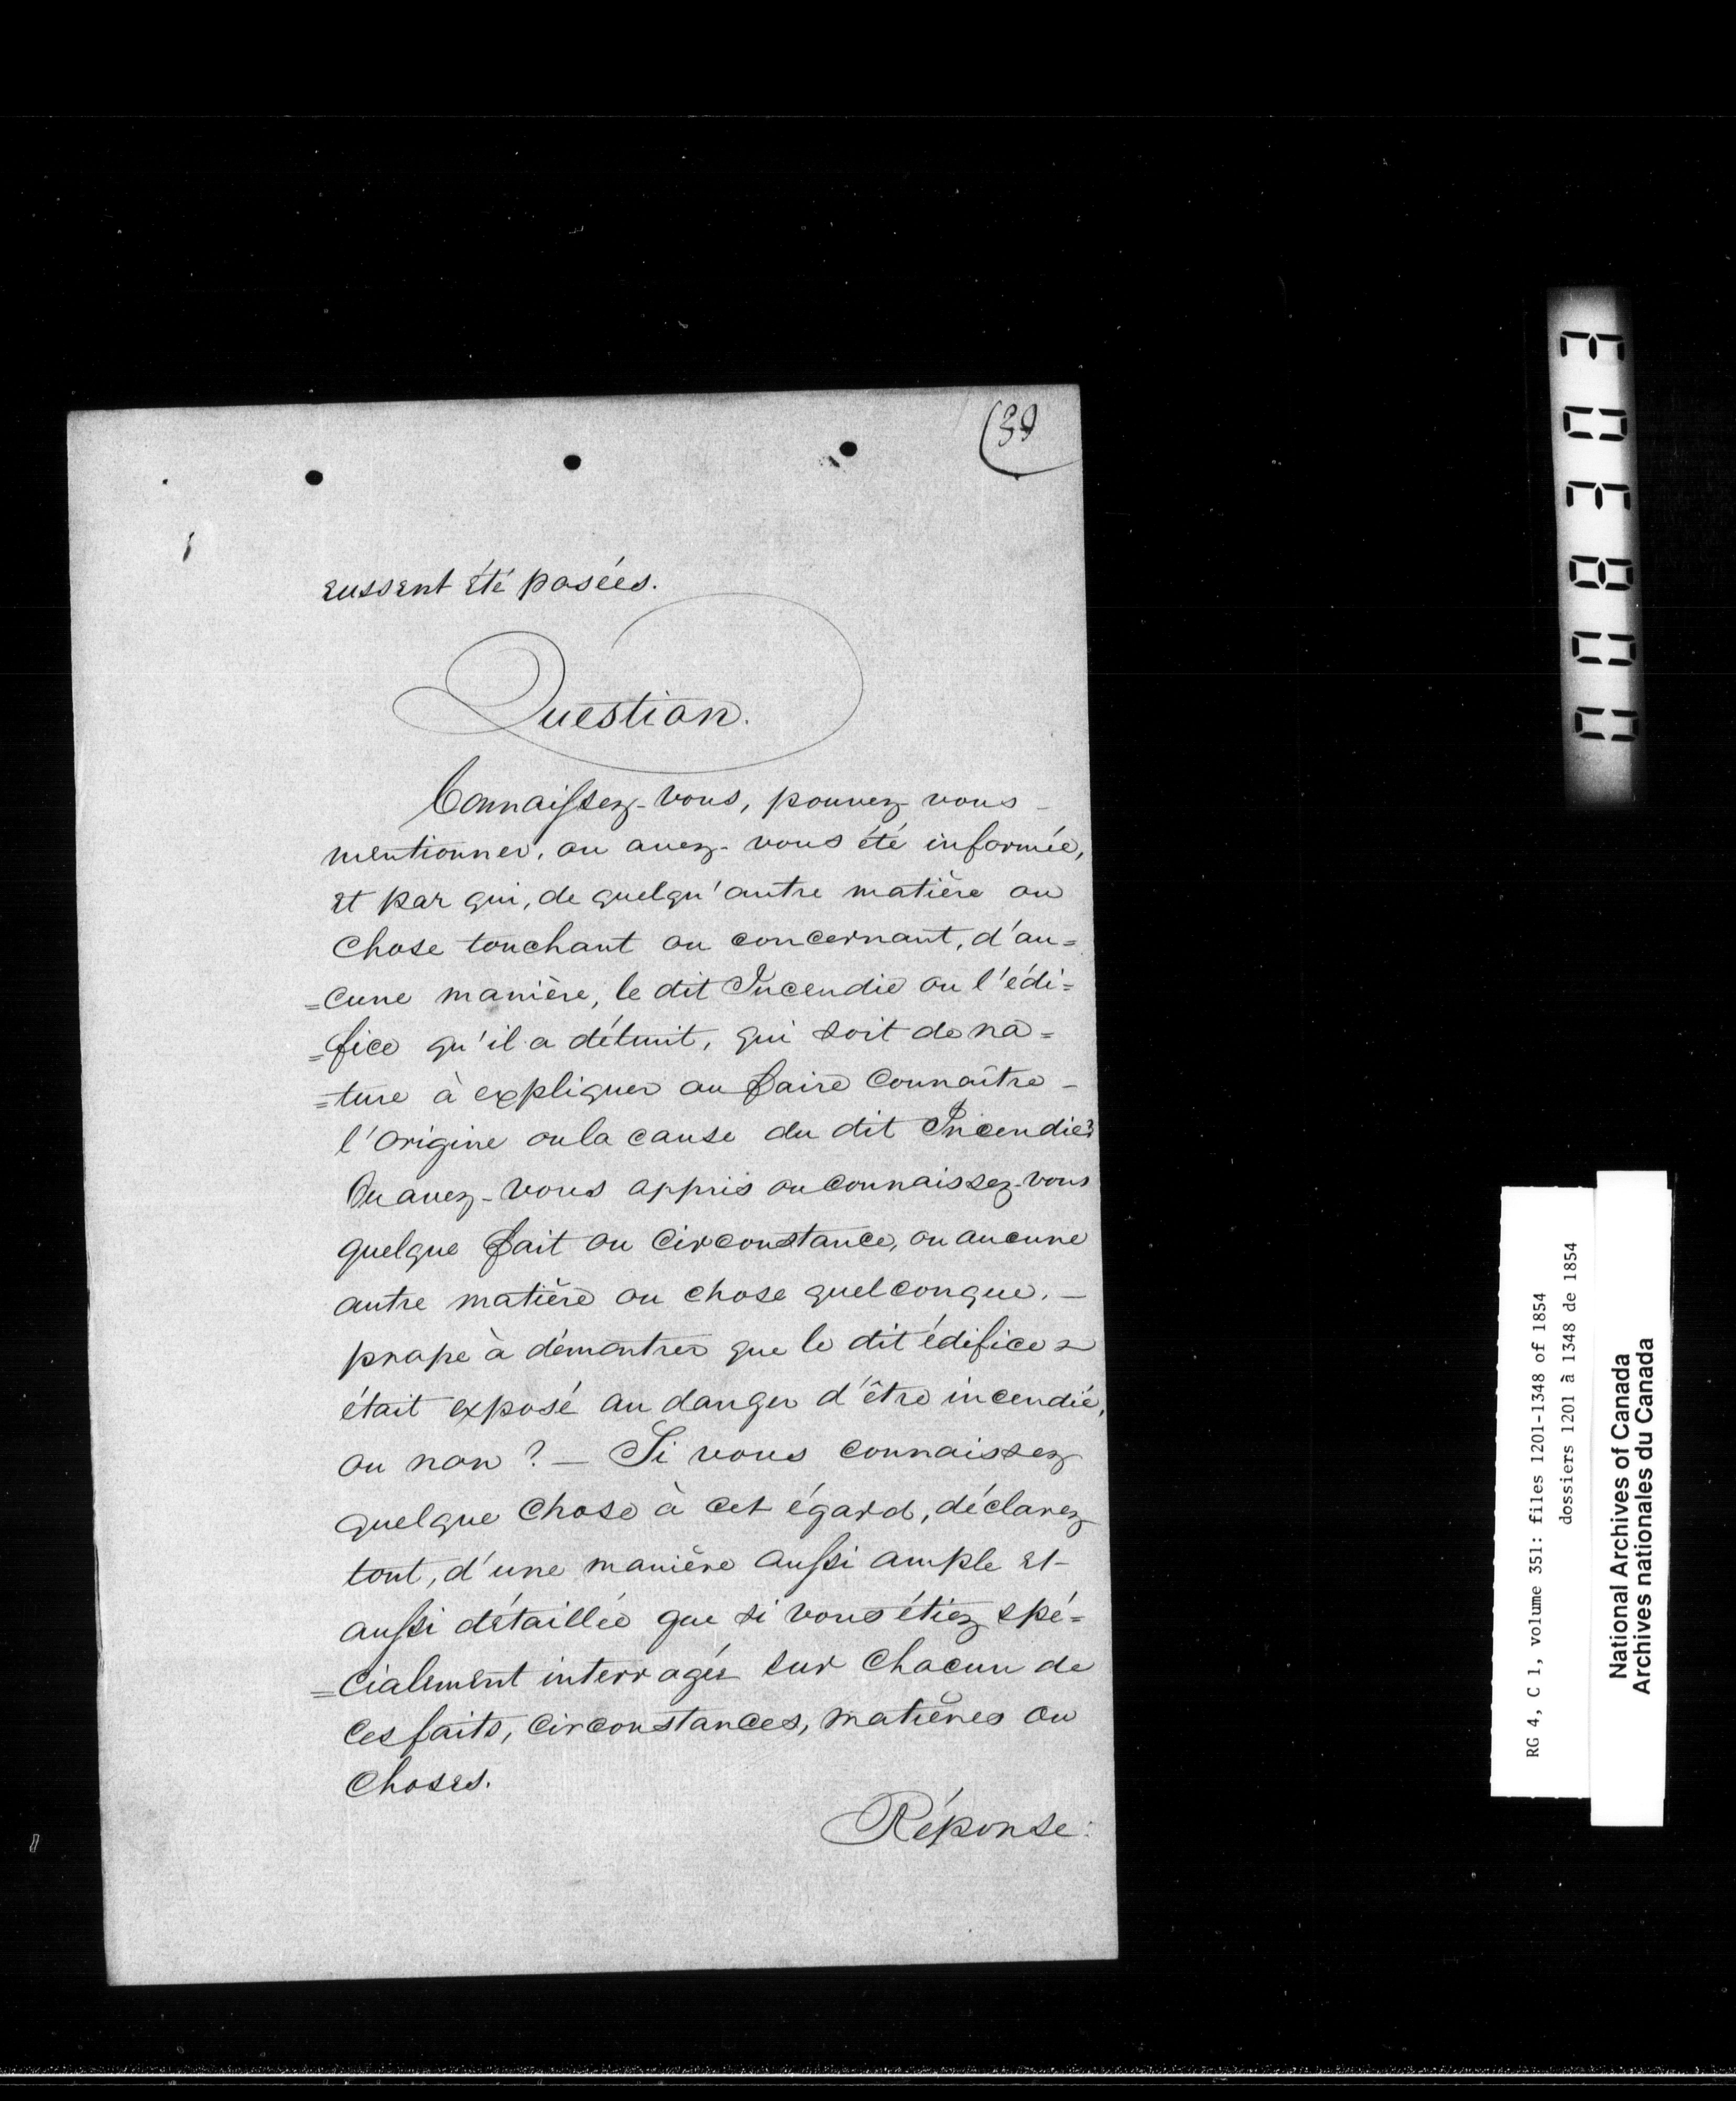 (39
eussent été posées.
Question.
Connaissez-vous, pouvez vous -
mentionner, ou avez-vous été informée,
et par qui, de quelqu'autre matière ou
chose touchant ou concernant, d'au=
=cune manière, le dit Incendie ou l'édi=
=fice qu'il a détruit, qui soit de na=
=ture à expliquer ou faire connaître -
l'origine ou la cause du dit Incendie?
Ou avez-vous appris ou connaissez-vous
quelque fait ou circonstance, ou aucune
autre matière ou chose quelconque. -
prope à démontrer que le dit édifice
était exposé au danger d'être incendié,
ou non ? - Si vous connaissez
quelque chose à cet égard, déclarez
tout, d'une manière aussi ample et -
aussi détaillée que si vous étiez spé=
=cialement interrogée sur chacun de
ces faits, circonstances, matières ou
choses.
Réponse:
RG 4, C 1, volume 351: files 1201-1348 of 1854
dossiers 1201 à 1348 de 1854
National Archives of Canada
Archives nationales du Canada